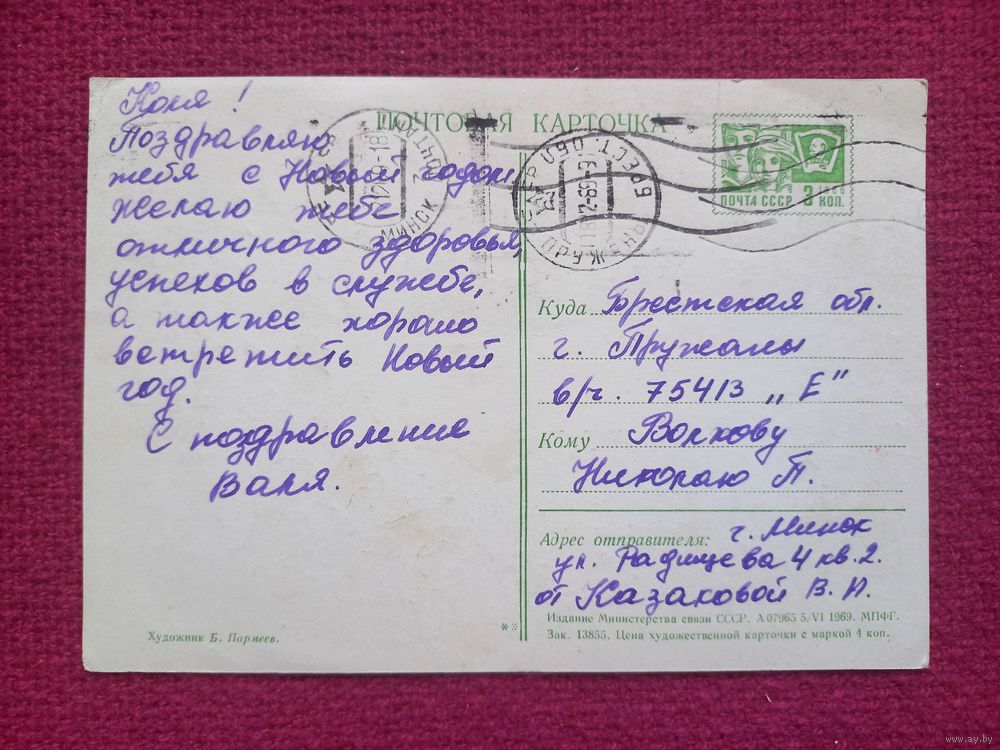 Коля!
Поздравляю
тебя с Новым годом
желаю тебе
отличного здоровья,
успехов в службе,
а также хорошо
встретить Новый
год.
С поздравление
Валя.
Художник Б. Пармеев.
ПОЧТОВАЯ КАРТОЧКА
МИНСК
ПОЧТАМТ
БРЕСТ. ОБЛ
ПОЧТА СССР 3 КОП.
1966
Куда Брестская обл.
г. Пружаны
в/ч. 75413 „Е"
Кому Волкову
Николаю П.
Адрес отправителя: г. Минск
ул. Радищева 4 кв. 2.
от Казаковой В. Н.
Издание Министерства связи СССР. А07965 5/VI 1969. МПФГ.
Зак. 13855. Цена художественной карточки с маркой 4 коп.
www.ay.by